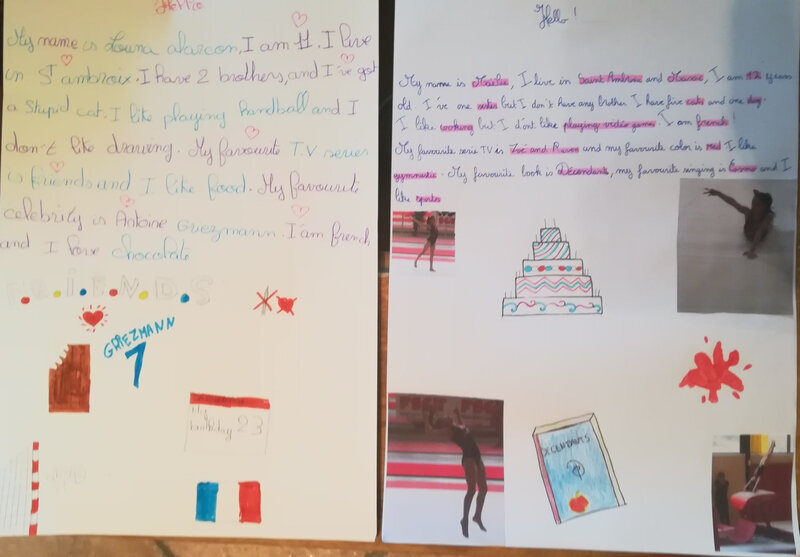 Hello
My name is Louna alarcon, I am 11. I live
in S^t ambroix. I have 2 brothers, and I've got
a stupid cat. I like playing handball and I
don't like drawing. My favourite T.V series
is friends and I like food. My favourite
celebrity is Antoine Griezmann. I'am french
and I love chocolate
F.R.I.E.N.D.S
GRIEZMANN
7
My
birthday 23
Hello !
My name is, I live in Saint Ambroix and, I am 12 years
old. I've one sister but I don't have any brother. I have five cats and one dog.
I like cooking but I d'ont like playing vidéo game. I am french !
My favourite serie TV is Zoé and Raven and my favourite color is red I like
gymnastic. My favourite book is Décendants, my favourite singing is and I
like sprites
DECENDANTS